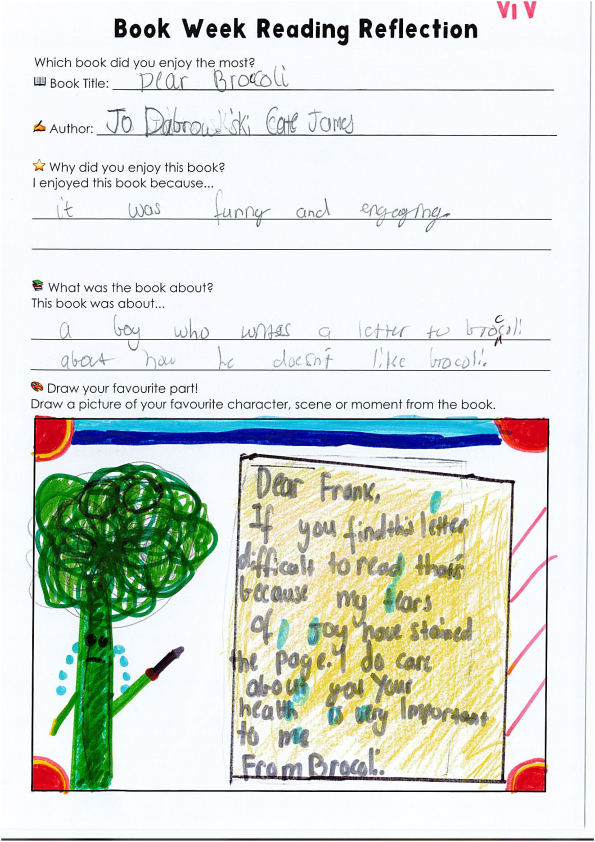 Viv
Book Week Reading Reflection
Which book did you enjoy the most?
Book Title: Dear Brocoli
Author: Jo Dabrowski Cate James
Why did you enjoy this book?
I enjoyed this book because...
it was funny and engaging.
What was the book about?
This book was about...
a boy who writes a letter to broccoli
about how he doesn't like brocoli.
Draw your favourite part!
Draw a picture of your favourite character, scene or moment from the book.
Dear Frank,
If you find this letter
difficult to read that's
because my tears
of joy have stained
the page. I do care
about you Your
health is very Important
to me
From Brocoli.